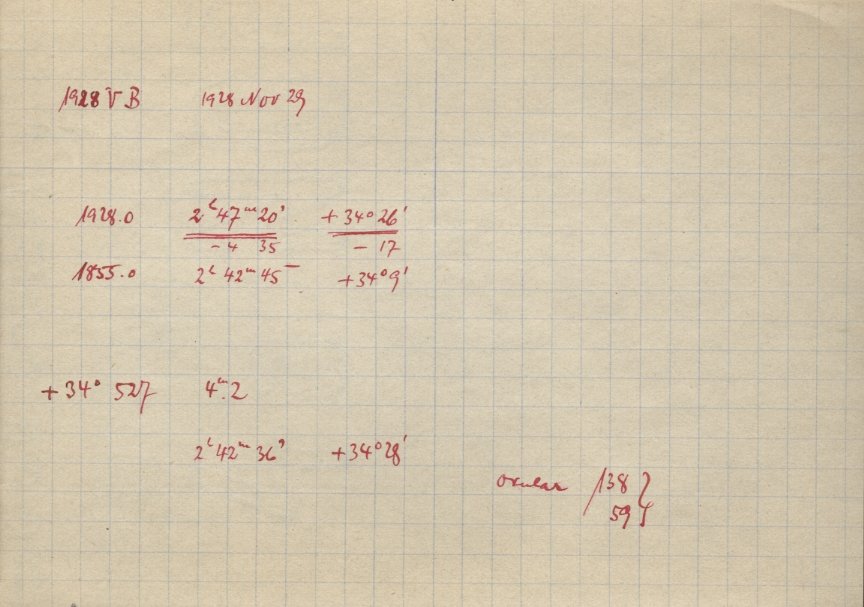 1928 V B 1928 Nov 29
1928.0 2h 47m 20s +34° 26'
-4 35 -17
1855.0 2h 42m 45s +34° 9'
+34° 527 4m.2
2h 42m 36s +34° 28'
Okular 138 }
59 }